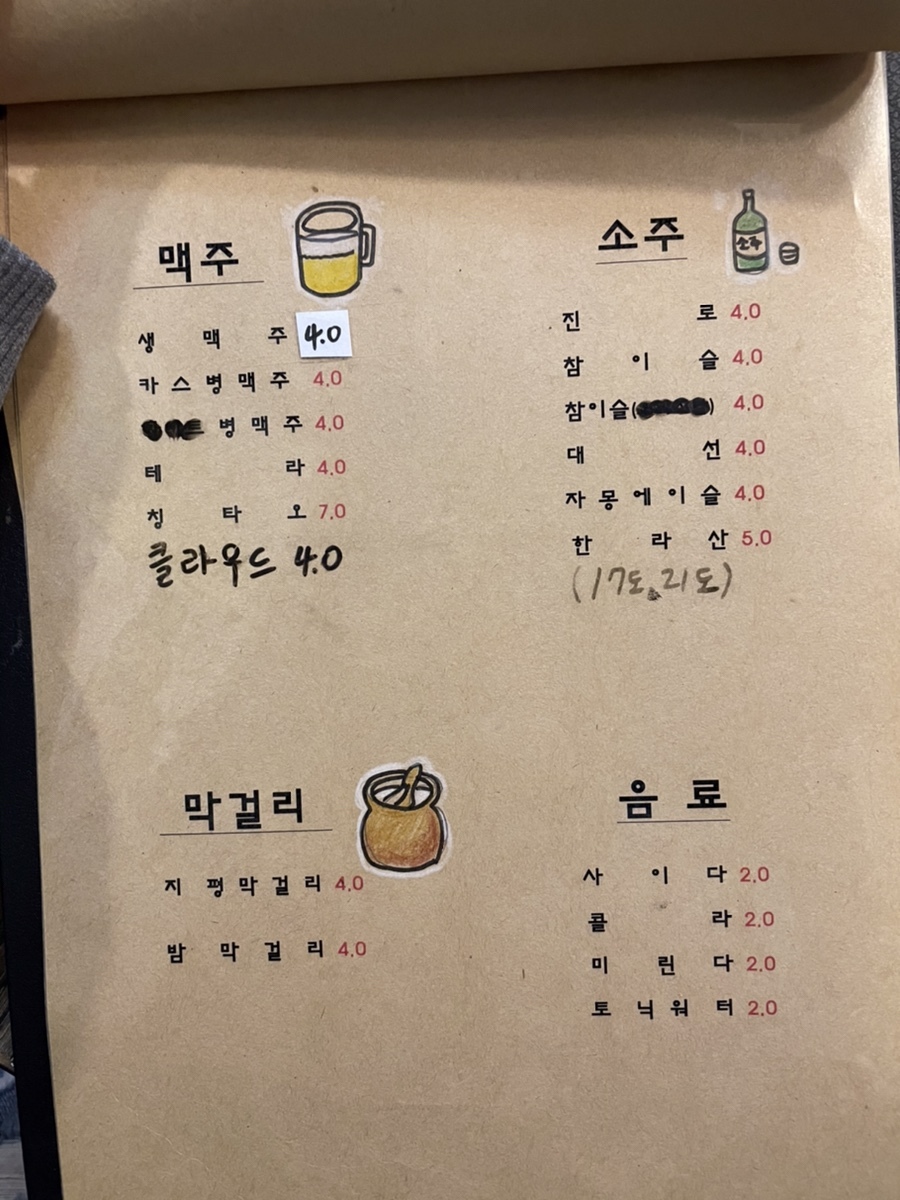 맥주
생맥주 4.0
카스병맥주 4.0
병맥주 4.0
테라 4.0
칭타오 7.0
클라우드 4.0
소주
소주
진로 4.0
참이슬 4.0
참이슬( ) 4.0
대선 4.0
자몽에이슬 4.0
한라산 5.0
(17도, 21도)
막걸리
지평막걸리 4.0
밤막걸리 4.0
음료
사이다 2.0
콜라 2.0
미린다 2.0
토닉워터 2.0